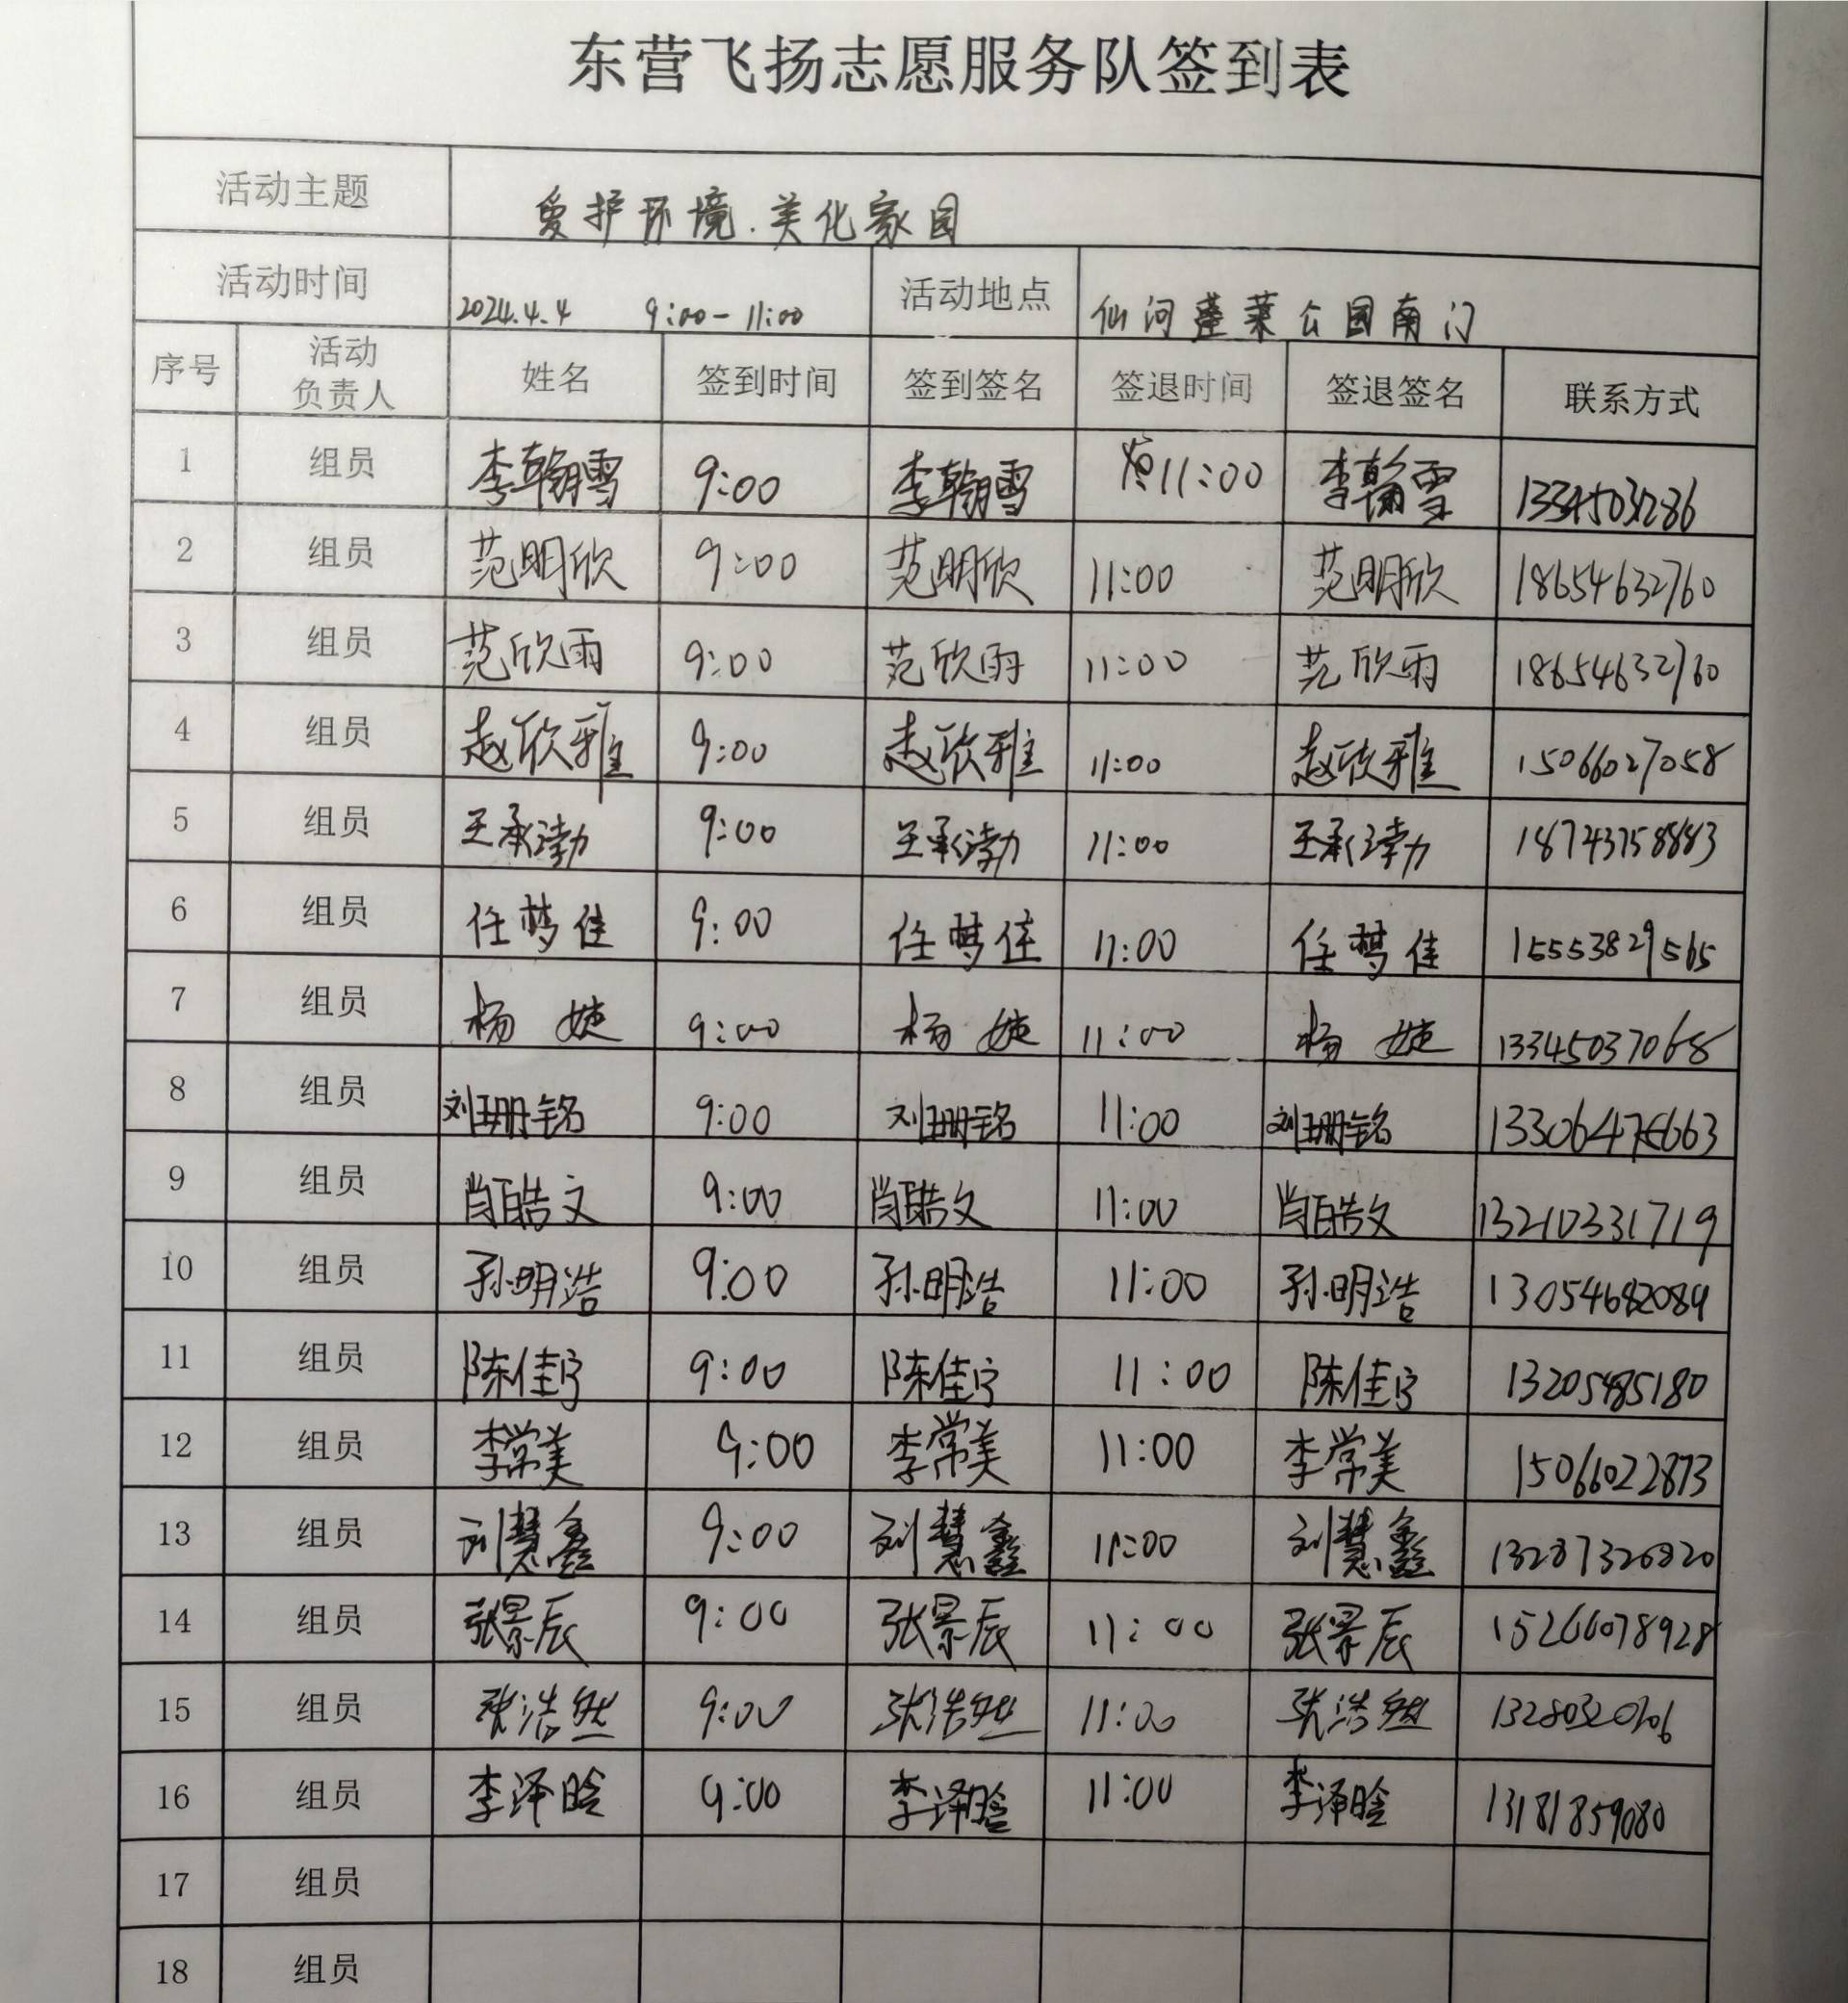 东营飞扬志愿服务队签到表
活动主题 爱护环境.美化家园
活动时间 2024.4.4 9:00-11:00 活动地点 仙河蓬莱公园南门
序号 活动负责人 姓名 签到时间 签到签名 签退时间 签退签名 联系方式
1 组员 李翰雪 9:00 李翰雪 11:00 李翰雪
2 组员 范明欣 9:00 范明欣 11:00 范明欣 18654632760
3 组员 范欣雨 9:00 范欣雨 11:00 范欣雨 18654632760
4 组员 赵欣雅 9:00 赵欣雅 11:00 赵欣雅 15066027058
5 组员 王承渤 9:00 王承渤 11:00 王承渤 18743758883
6 组员 任梦佳 9:00 任梦佳 11:00 任梦佳 15553829565
7 组员 杨婕 9:00 杨婕 11:00 杨婕 13345037068
8 组员 刘珊铭 9:00 刘珊铭 11:00 刘珊铭
9 组员 肖皓文 9:00 肖皓文 11:00 肖皓文 13210331719
10 组员 孙明浩 9:00 孙明浩 11:00 孙明浩 13054682089
11 组员 陈佳宁 9:00 陈佳宁 11:00 陈佳宁 13205485180
12 组员 李常美 9:00 李常美 11:00 李常美 15066022873
13 组员 刘慧鑫 9:00 刘慧鑫 11:00 刘慧鑫 13287326820
14 组员 张景辰 9:00 张景辰 11:00 张景辰 15266078928
15 组员 张浩然 9:00 张浩然 11:00 张浩然
16 组员 李泽晗 9:00 李泽晗 11:00 李泽晗 13181859080
17 组员
18 组员